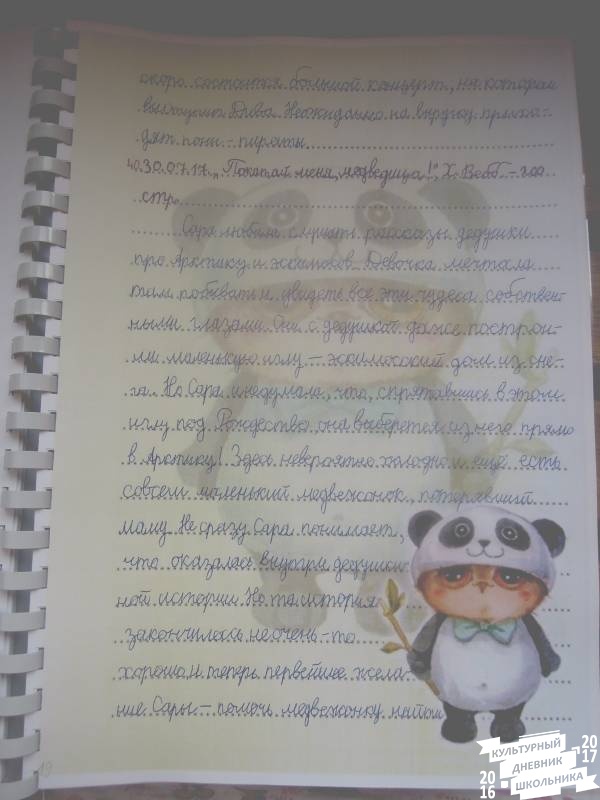 скоро состоится большой концерт, на котором
выступит Дива. Неожиданно на выручку прихо-
дят пони - пираты.
40. 30.07.17. „Покатай меня, медведица!", Х. Вебб. - 144
стр.
Сара любит слушать рассказы дедушки
про Арктику и эскимосов. Девочка мечтала
там побывать и увидеть все эти чудеса собствен-
ными глазами. Они с дедушкой даже построи-
ли маленькую иглу - эскимосский дом из сне-
га. Но Сара и не думала, что, спрятавшись в этом
иглу под Рождество, она выберется из него прямо
в Арктику! Здесь невероятно холодно и ещё есть
совсем маленький медвежонок, потерявший
маму. Не сразу Сара понимает,
что оказалась внутри дедушки-
ной истории. Но та история
закончилась не очень-то
хорошо. И теперь первейшее жела-
ние Сары - помочь медвежонку найти
19
КУЛЬТУРНЫЙ
ДНЕВНИК
ШКОЛЬНИКА
2016
2017